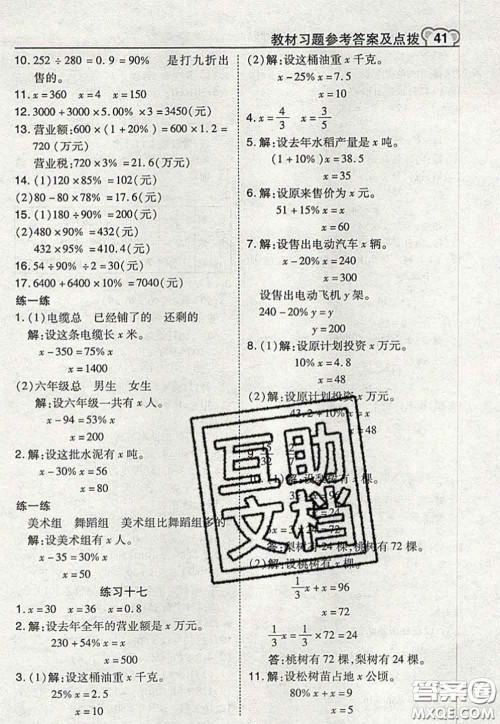 教材习题参考答案及点拨 41
10. 252÷280=0.9=90% 是打九折出
售的。
11. x=360 x=4 x=150
12. 3000+3000×5.00%×3=3450(元)
13. 营业额:600×(1+20%)=600×1.2=
720(万元)
营业税:720×3%=21.6(万元)
14. (1)120×85%=102(元)
(2)80-80×78%=17.6(元)
15. (1)180÷90%=200(元)
(2)480×90%=432(元)
432×95%=410.4(元)
16. 54÷90%÷2=30(元)
17. 6400+6400×10%=7040(元)
练一练
1. (1)电缆总 已经铺了的 还剩的
解:设这条电缆长x米。
x-350=75%x
x=1400
(2)六年级总 男生 女生
解:设六年级一共有x人。
x-94=53%x
x=200
2. 解:设这批水泥有x吨。
x-30%x=56
x=80
练一练
美术组 舞蹈组 美术组比舞蹈组多的
解:设舞蹈组有x人。
x-35=30%x
x=50
练习十七
1. x=30 x=36 x=0.8
2. 解:设去年全年的营业额是x万元。
230+54%x=x
x=500
3. (1)解:设这桶油重x千克。
25%x=2.5
x=10
(2)解:设这桶油重x千克。
x-25%x=7.5
x=10
4. x=4/3 x=3/5
5. 解:设去年水稻产量是x吨。
(1+10%)x=38.5
x=35
6. 解:设原来售价为x元。
51+15%x=x
x=60
7. 解:设售出电动汽车x辆。
x-30%x=240
设售出电动飞机y架。
240-20%y=
8. (1)解:设原计划投资x万元。
10%x=4.8
x=48
(2)解:设原计划投资x万元。
43.2+10%x=x
x=48
互助
文档
x=24
答:梨树有24棵,桃树有72棵。
(2)解:设桃树有x棵。
1/3x+x=96
x=72
1/3x=1/3×72=24
答:桃树有72棵,梨树有24棵。
11. 解:设松树苗占地x公顷。
80%x+x=9
答案圈
MXQE.COM